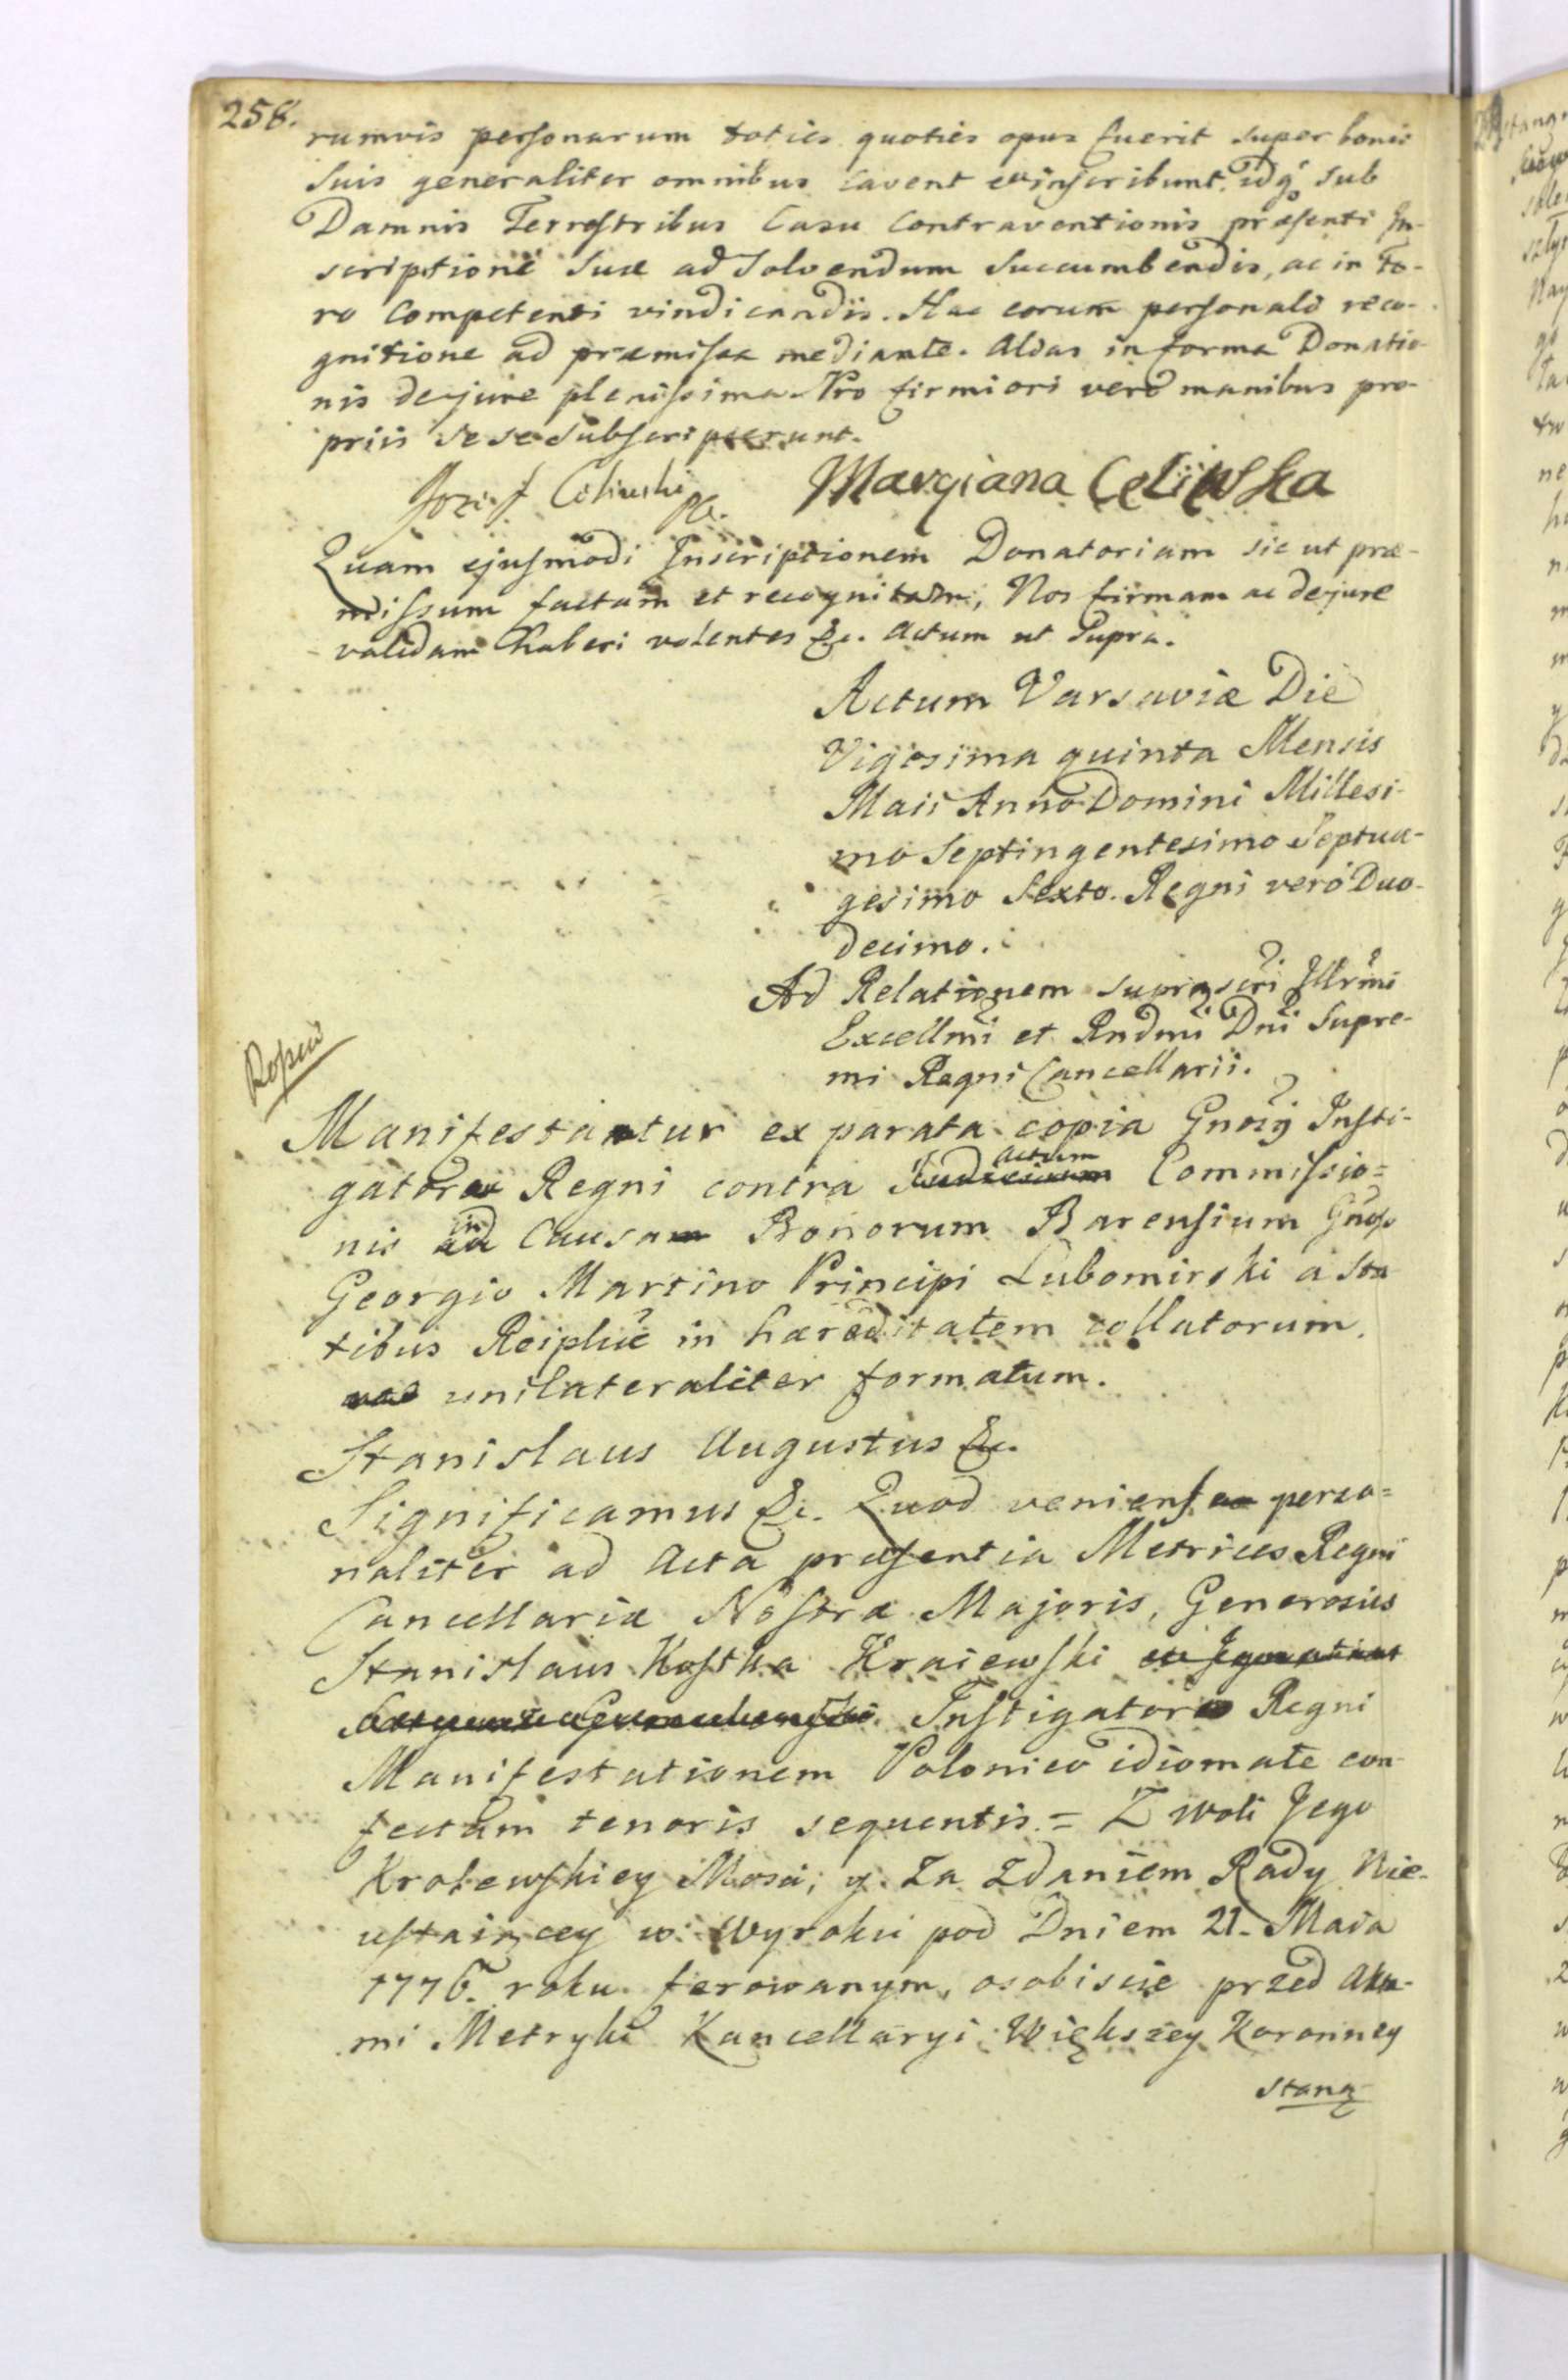 258.
rumvis personarum toties quoties opus fuerit super bonis
suis generaliter omnibus cavent et inscribunt. idq; sub
Damnis Terrestribus Casu Contraventionis præsenti In-
scriptioni suæ ad solvendum succumbendis, ac in Fo-
ro Competenti vindicandis. Hac eorum personali reco-
gnitione ad præmissa mediante. Alias in forma Donatio-
nis de jure plenissima. Pro firmiori vero manibus pro-
priis sese subscripserunt.
Jozef Celinski Marcjana Celinska
Quam ejusmodi Inscriptionem Donatoriam sic ut præ-
missum factam et recognitam, Nos firmam ac de jure
validam haberi volentes &c. Actum ut Supra.
Actum Varsaviæ Die
Vigesima quinta Mensis
Maii Anno Domini Millesi-
mo Septingentesimo Septua-
gesimo Sexto. Regni vero Duo-
decimo.
Ad Relationem suprascri Illrmi
Excellmi et Rndmi Dni Supre-
mi Regni Cancellarii.
Manifestatur ex parata copia Gnosy Insti-
gator Regni contra Judicium actum Commissio=
nis ad in Causam Bonorum Barensium Gnoso
Georgio Martino Principi Lubomirski a Sta
tibus Reiplicæ in hæreditatem collatorum
unilateraliter formatum.
Stanislaus Augustus &c.
Significamus &c. Quod veniens perso=
naliter ad Acta præsentia Metrices Regni
Cancellariæ Nostræ Majoris, Generosus
Stanislaus Kostka Kraiewski
Instigator Regni
Manifestationem Polonico idiomate con-
fectam tenoris sequentis = Z woli Jego
Krolewskiey Mosci, y za zdaniem Rady Nie-
ustaiącey w Wyroku pod Dniem 21. Maia
1776. roku ferowanym, osobiscie przed Akta-
mi Metryki Kancellaryi Większey Koronney
staną